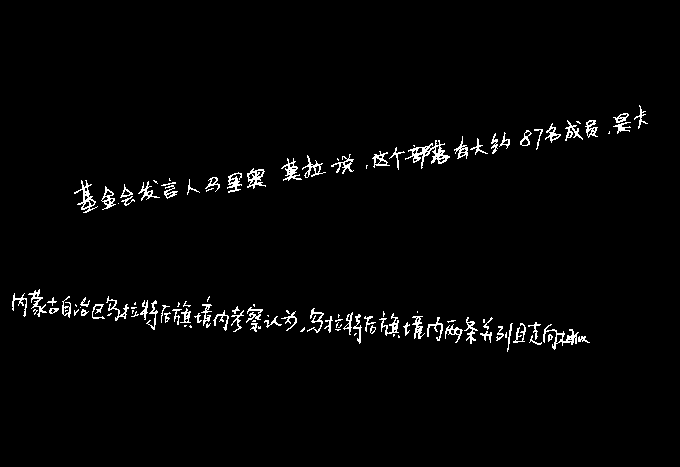 基金会发言人马里奥 莫拉说，这个部落有大约87名成员，是卡
内蒙古自治区乌拉特后旗境内考察认为，乌拉特后旗境内两条并列且走向相似